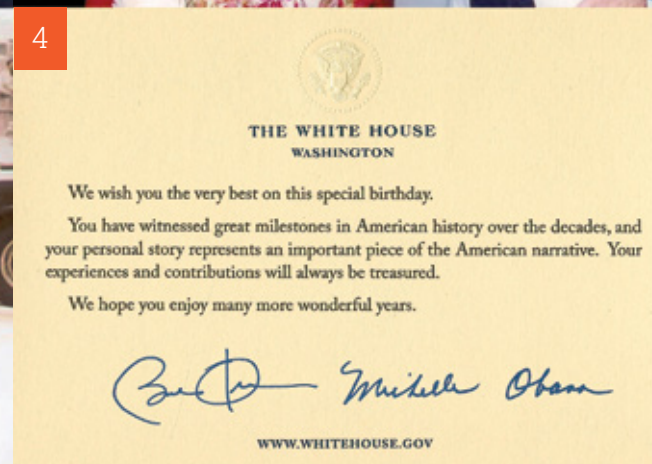 4
THE WHITE HOUSE
WASHINGTON
We wish you the very best on this special birthday.
You have witnessed great milestones in American history over the decades, and
your personal story represents an important piece of the American narrative. Your
experiences and contributions will always be treasured.
We hope you enjoy many more wonderful years.
Michelle Obama
WWW.WHITEHOUSE.GOV